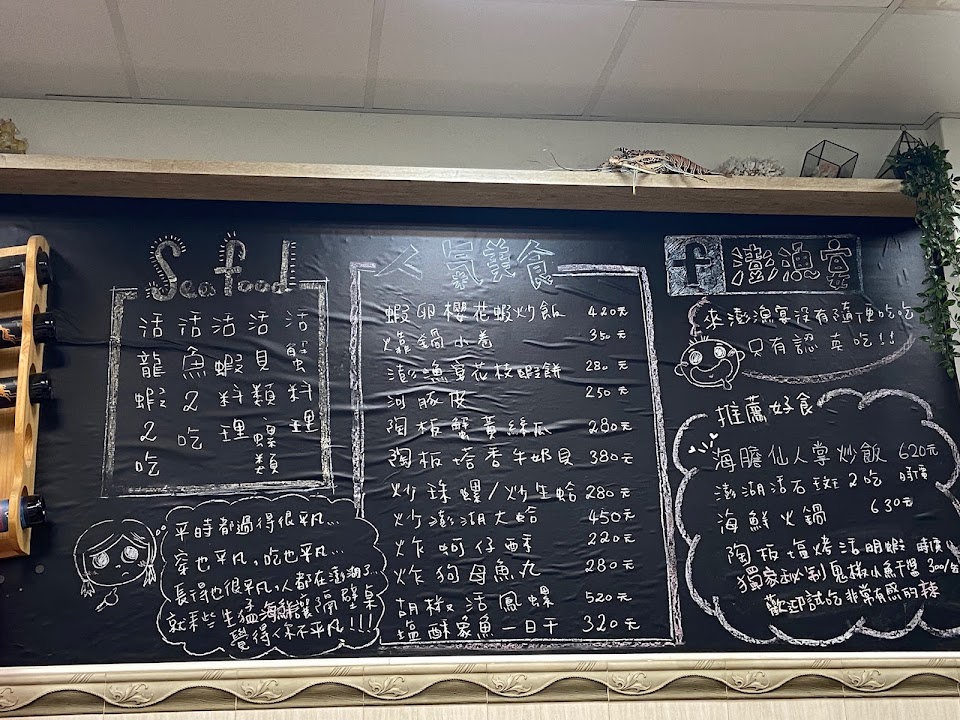 Seafood
活龍蝦2吃
活魚2吃
活蝦料理
活貝類螺類
活蟹料理
平時都過得很平凡...
穿也平凡,吃也平凡...
長得也很平凡,人都在澎湖了..
就來些生猛海鮮讓隔壁桌
覺得你不平凡!!!
人氣美食
蝦卵櫻花蝦炒飯 420元
爆鍋小卷 350元
澎漁宴花枝蝦餅 280元
河豚 250元
陶板蟹黃絲瓜 280元
陶板塔香牛奶貝 380元
炒珠螺/炒生蛤 280元
炒澎湖大蛤 450元
炸蚵仔酥 220元
炸狗母魚丸 280元
胡椒活鳳螺 520元
塩酥象魚一日干 320元
f 澎漁宴
來澎漁宴沒有隨便吃吃
只有認真吃!!
推薦好食
海膽仙人掌炒飯 620元
澎湖活石斑2吃 時價
海鮮火鍋 630元
陶板塩烤活明蝦 時價
獨家秘製鬼椒小魚干醬 300/
歡迎試吃非常有感的辣